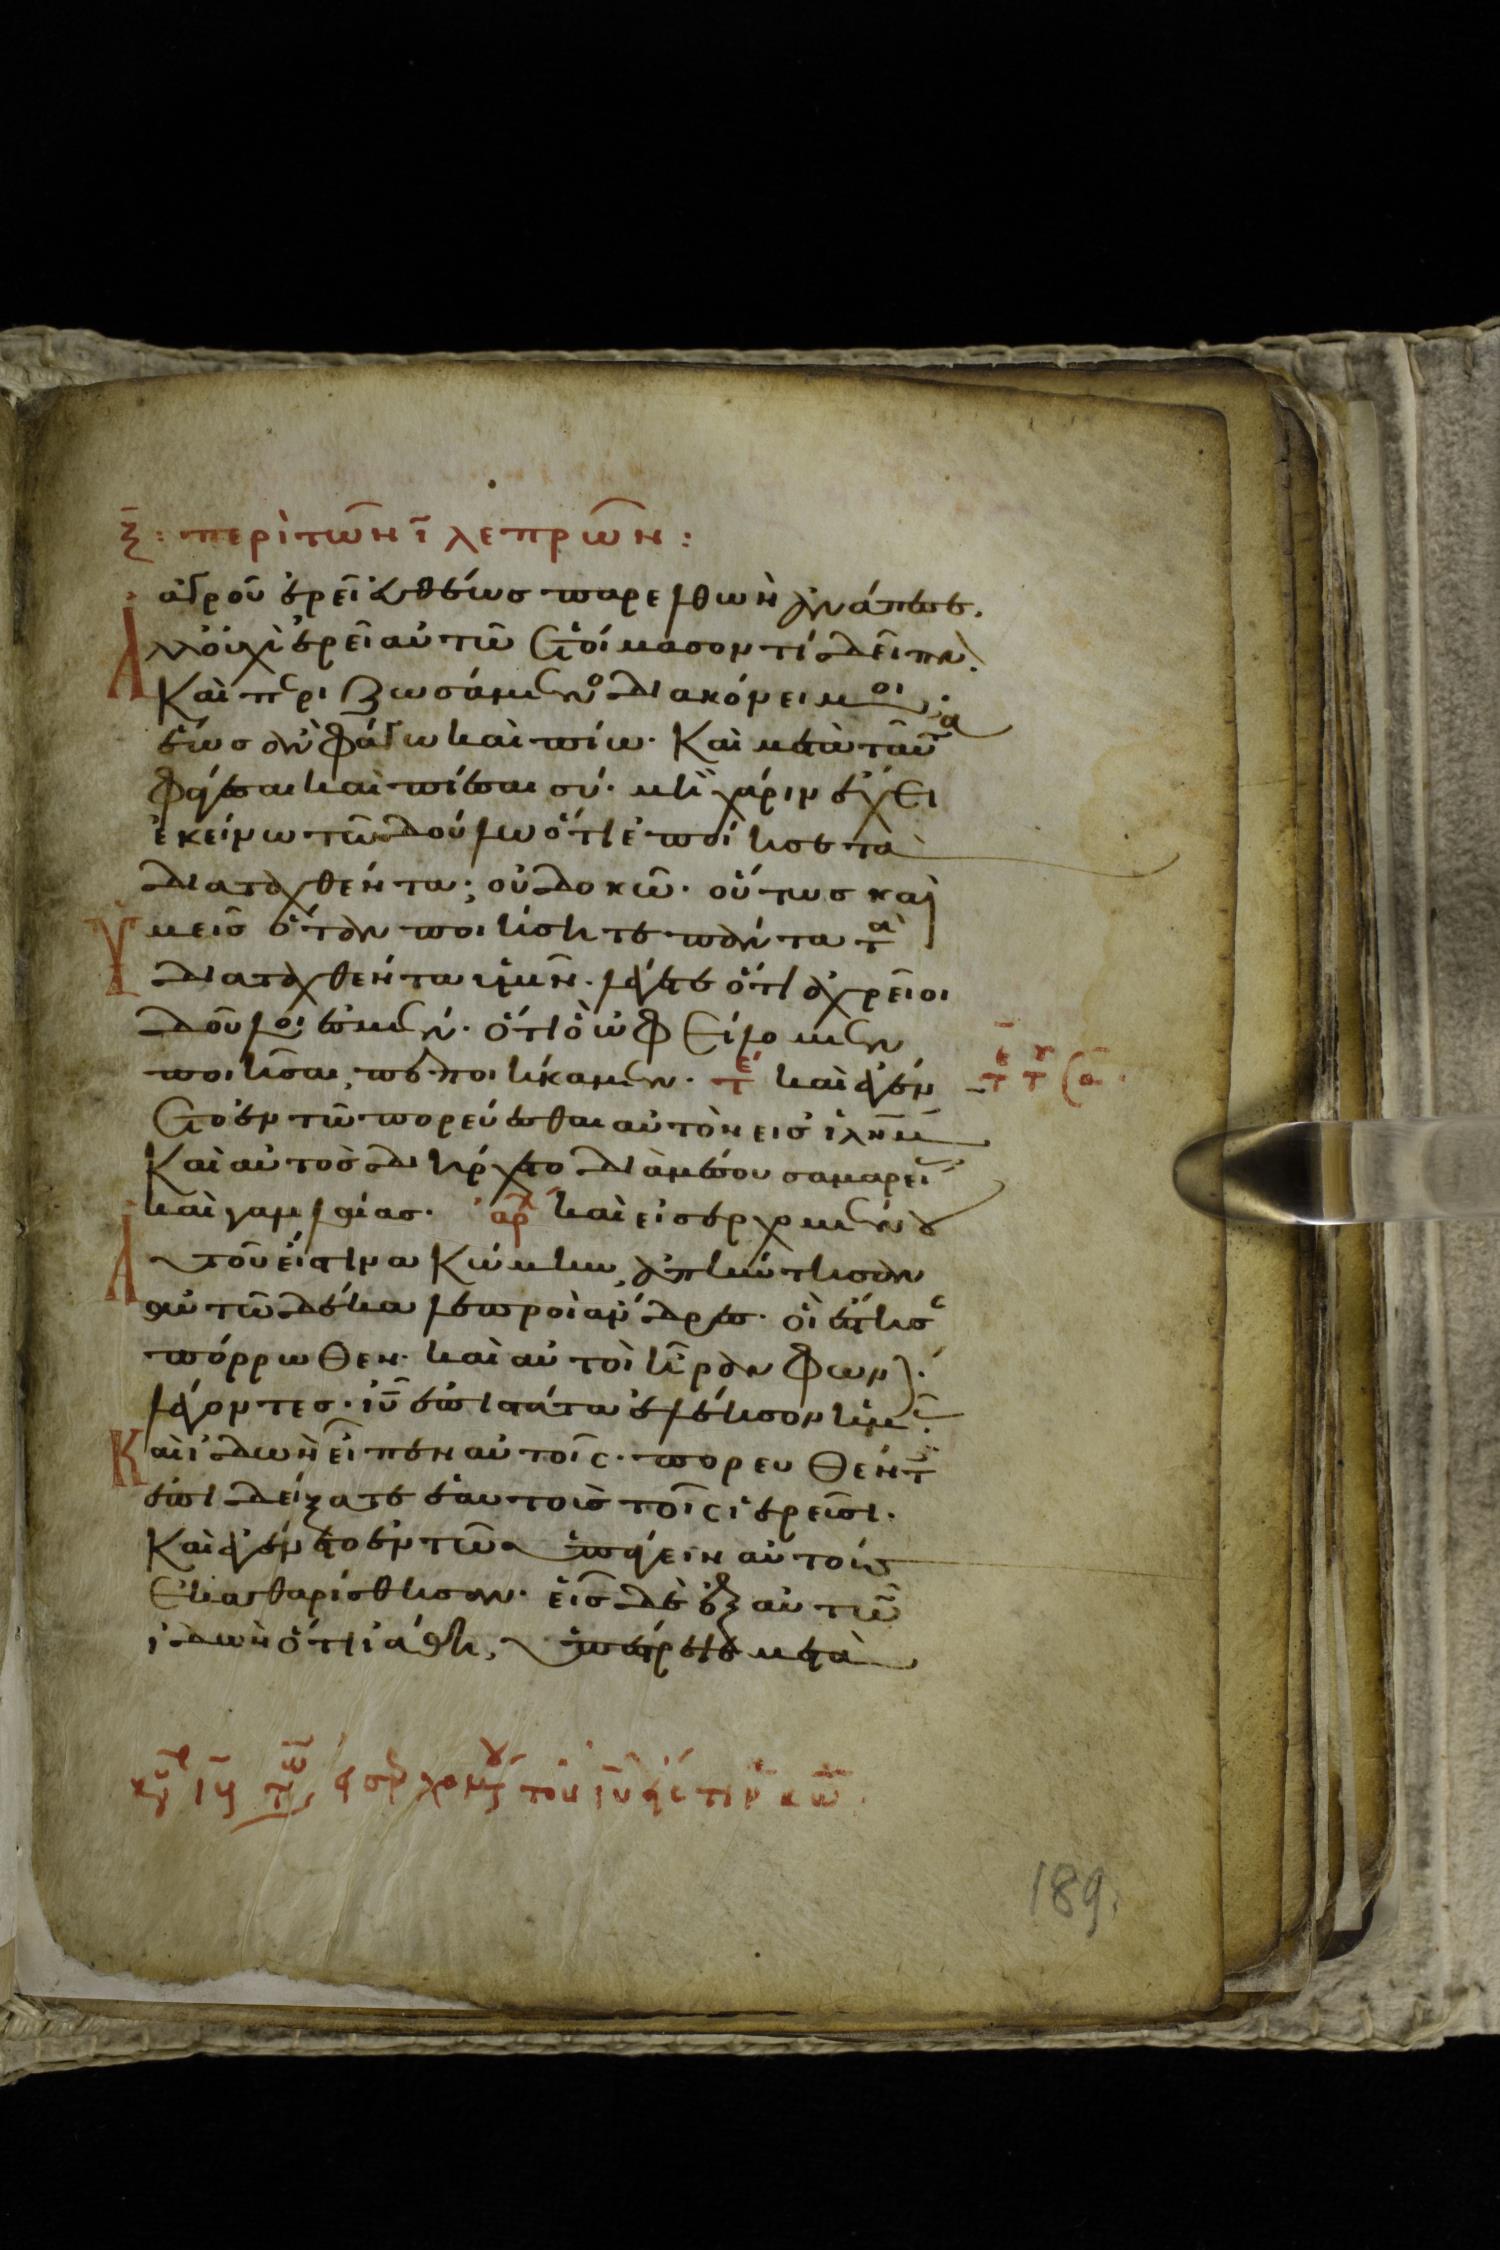 ξ̅: περὶ τῶν ι̅ λεπρῶν:
ἀγροῦ ἐρεῖ εὐθέως παρελθὼν ἀνάπεσε.
Ἀλλ' οὐχὶ ἐρεῖ αὐτῶ ἑτοίμασον τί δειπνή
καὶ περιζωσάμενος διακόνει μοι.
ἕως ἂν φάγω καὶ πίω. Καὶ μετὰ ταῦτα
φάγεσαι καὶ πίεσαι σύ. μὴ χάριν ἔχει
ἐκείνω τῶ δούλω ὅτι ἐποίησε τὰ
διαταχθέντα; οὐ δοκῶ. οὕτως καὶ
ὑμεῖς ὅταν ποιήσητε πάντα τὰ
διαταχθέντα ὑμῖν. λέγετε ὅτι ἀχρεῖοι
δοῦλοι ἐσμέν. ὅτι ὃ ὠφείλομεν
ποιῆσαι, πεποιήκαμεν. τε καὶ ἐγέν
ετο ἐν τῶ πορεύεσθαι αὐτὸν εἰς ἰλημ
καὶ αὐτὸς διήρχετο διὰ μέσου σαμαρεί
καὶ γαλιλαίας. αρχ καὶ εἰσερχομένου
αὐτοῦ εἴς τινα κώμην, ἀπήντησαν
αὐτῶ δέκα λεπροὶ ἄνδρες. οἳ ἔστησ
πόρρωθεν. καὶ αὐτοὶ ἦραν φων
λέγοντες. ἰῦ ἐπιστάτα ἐλέησον ἡμ
Καὶ ἰδὼν εἶπεν αὐτοῖς. πορευθέντ
ἐπιδείξατε ἑαυτοὺς τοῖς ἱερεῦσι.
Καὶ ἐγένετο ἐν τῶ ὑπάγειν αὐτοὺς
ἐκαθαρίσθησαν. εἷς δὲ ἐξ αὐτῶν
ἰδὼν ὅτι ἰάθη, ὑπέστρεψε μετὰ
189.